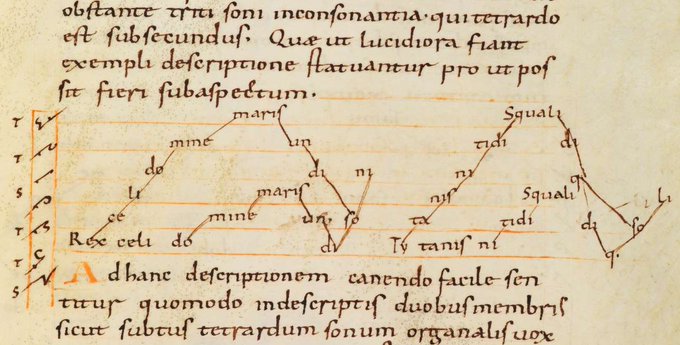 obstante triti soni inconsonantia· qui tetrardo
est subsecundus. Quæ ut lucidiora fiant
exempli descriptione statuantur pro ut pos
sit fieri sub aspectum.
maris Squali
T
mine un tidi di
T
do di ni ni q·
S li maris nis Squali li
T ce mine un so ta tidi di so
T Rex celi do di Ty tanis ni q·
T
S
Ad hanc descriptionem canendo facile sen
titur quomodo in descriptis duobus membris
sicut subtus tetrardum sonum organalis vox